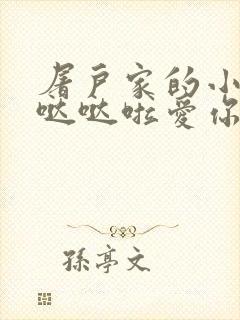 屠户家的小
哒哒啦爱你
孫亭文